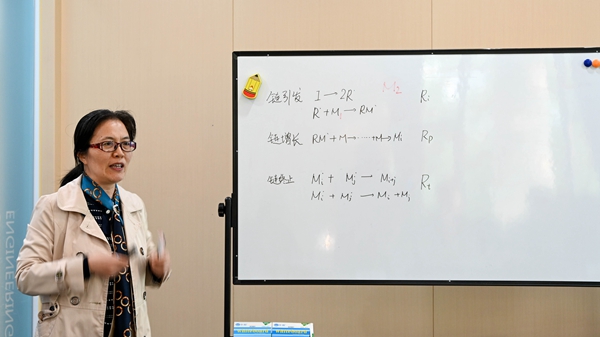 M₂
链引发 I → 2R· Rᵢ
R· + M₁ → RM·
链增长 RM· + M → ······ → Mᵢ Rₚ
链终止 Mᵢ + Mⱼ → Mᵢ₊ⱼ Rₜ
Mᵢ + Mⱼ → Mᵢ + Mⱼ
ENGINEERING